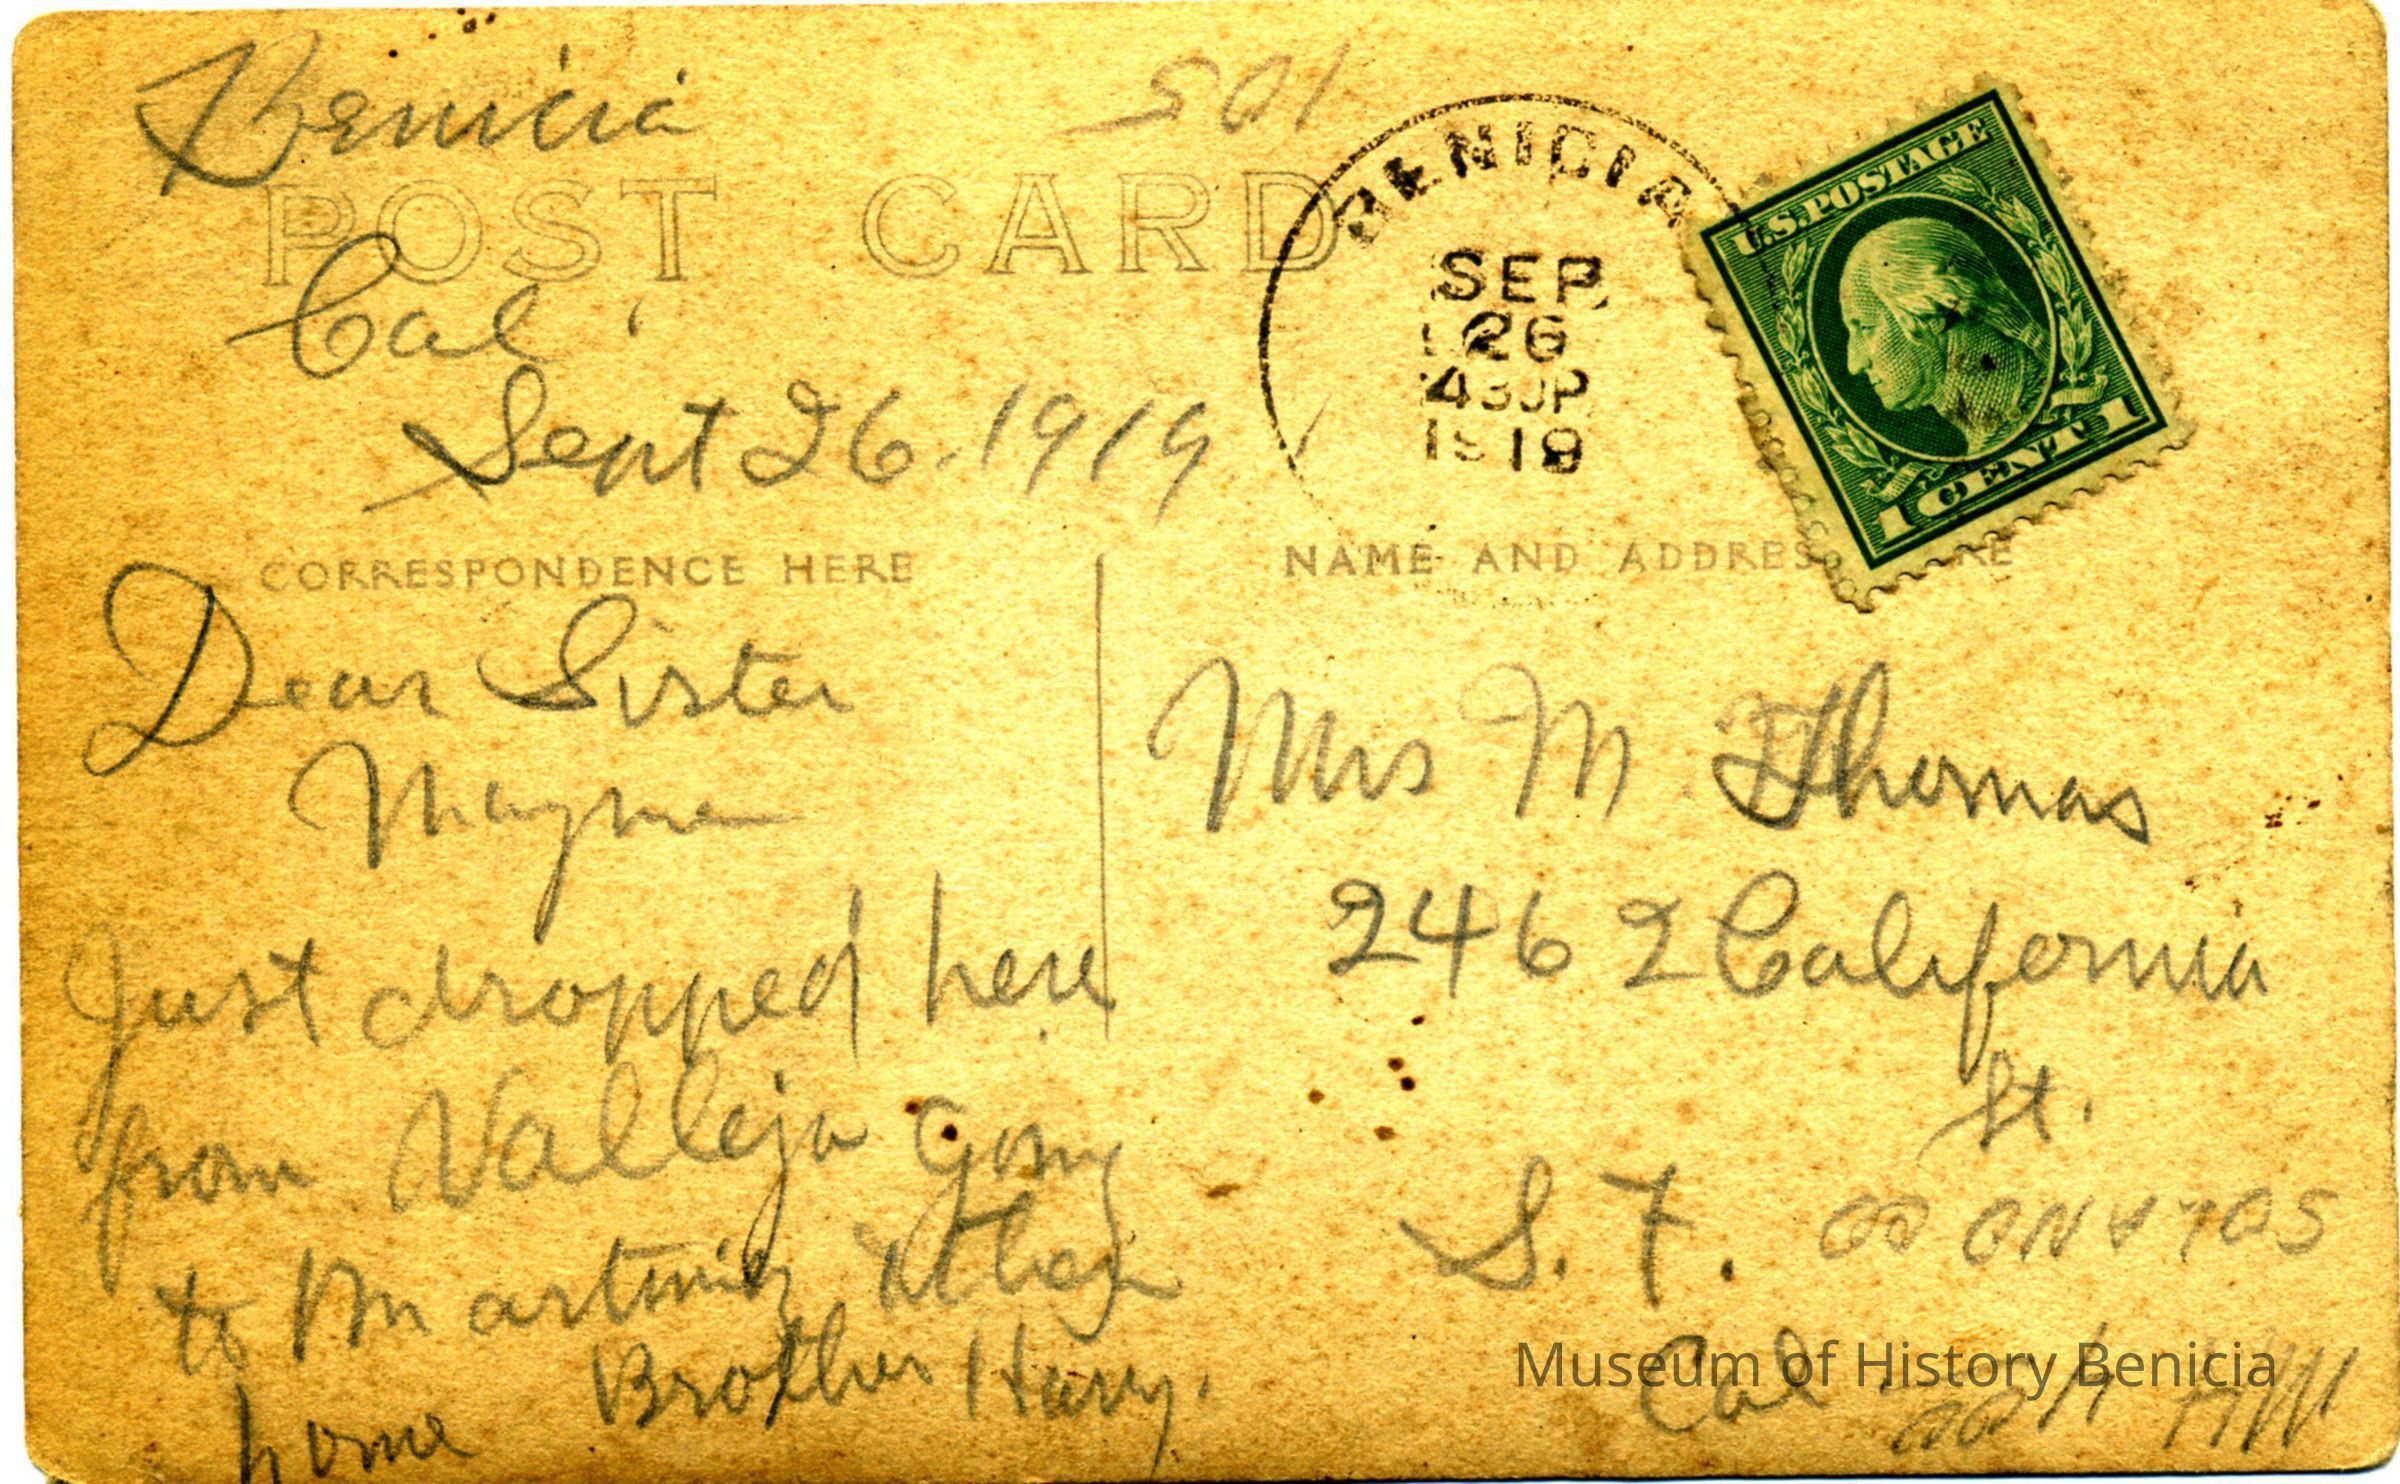 Benicia
501
POST CARD
Cal.
Sept 26. 1919
BENICIA
SEP
26
430P
1919
U.S. POSTAGE
1 CENT 1
CORRESPONDENCE HERE
NAME AND ADDRESS HERE
Dear Sister
Mayme
Just dropped here
from Vallejo Going
to Martinez
home
Brother Harry.
Mrs M Thomas
2462 California
St.
S. F.
Cal
SOLANO CO
Museum of History Benicia